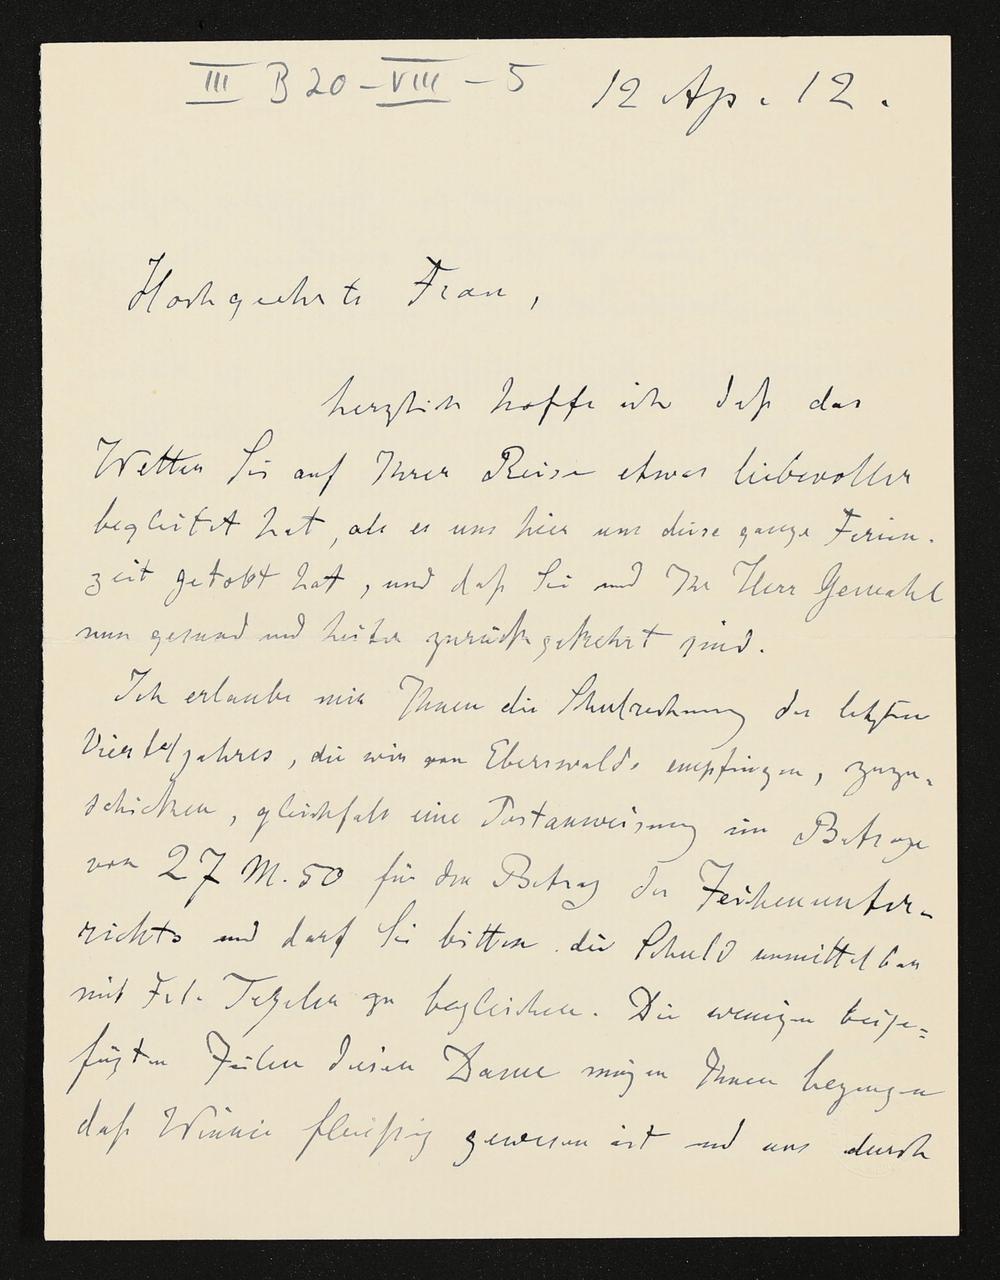 III B 20 - VIII - 5 12 Ap. 12.
Hochgeehrte Frau,
herzlich hoffe ich daß das
Wetter Sie auf Ihrer Reise etwas liebevoller
begleitet hat, als es uns hier um diese ganze Ferien-
zeit getobt hat, und daß Sie und Ihr Herr Gemahl
nun gesund und heiter zurückgekehrt sind.
Ich erlaube mir Ihnen die Schulrechnung des letzten
Vierteljahres, die wir von Eberswalde empfingen, zuzu-
schicken, gleichfalls eine Postanweisung im Betrage
von 27 M. 50 für den Betrag des Zeichenunter-
richts und darf Sie bitten die Schuld unmittelbar
mit Frl. zu begleichen. Die wenigen beige-
fügten Zeilen dieser Dame mögen Ihnen bezeugen
daß Winnie fleißig gewesen ist und uns durch